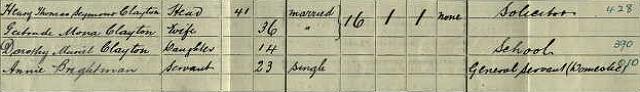 Henry Thomas Seymour Clayton Head 41 married 16 1 1 none Solicitor 428
Gertrude Mona Clayton Wife 36 "
Dorothy Muriel Clayton Daughter 14 School 390
Annie Brightman Servant 23 Single General Servant (Domestic)